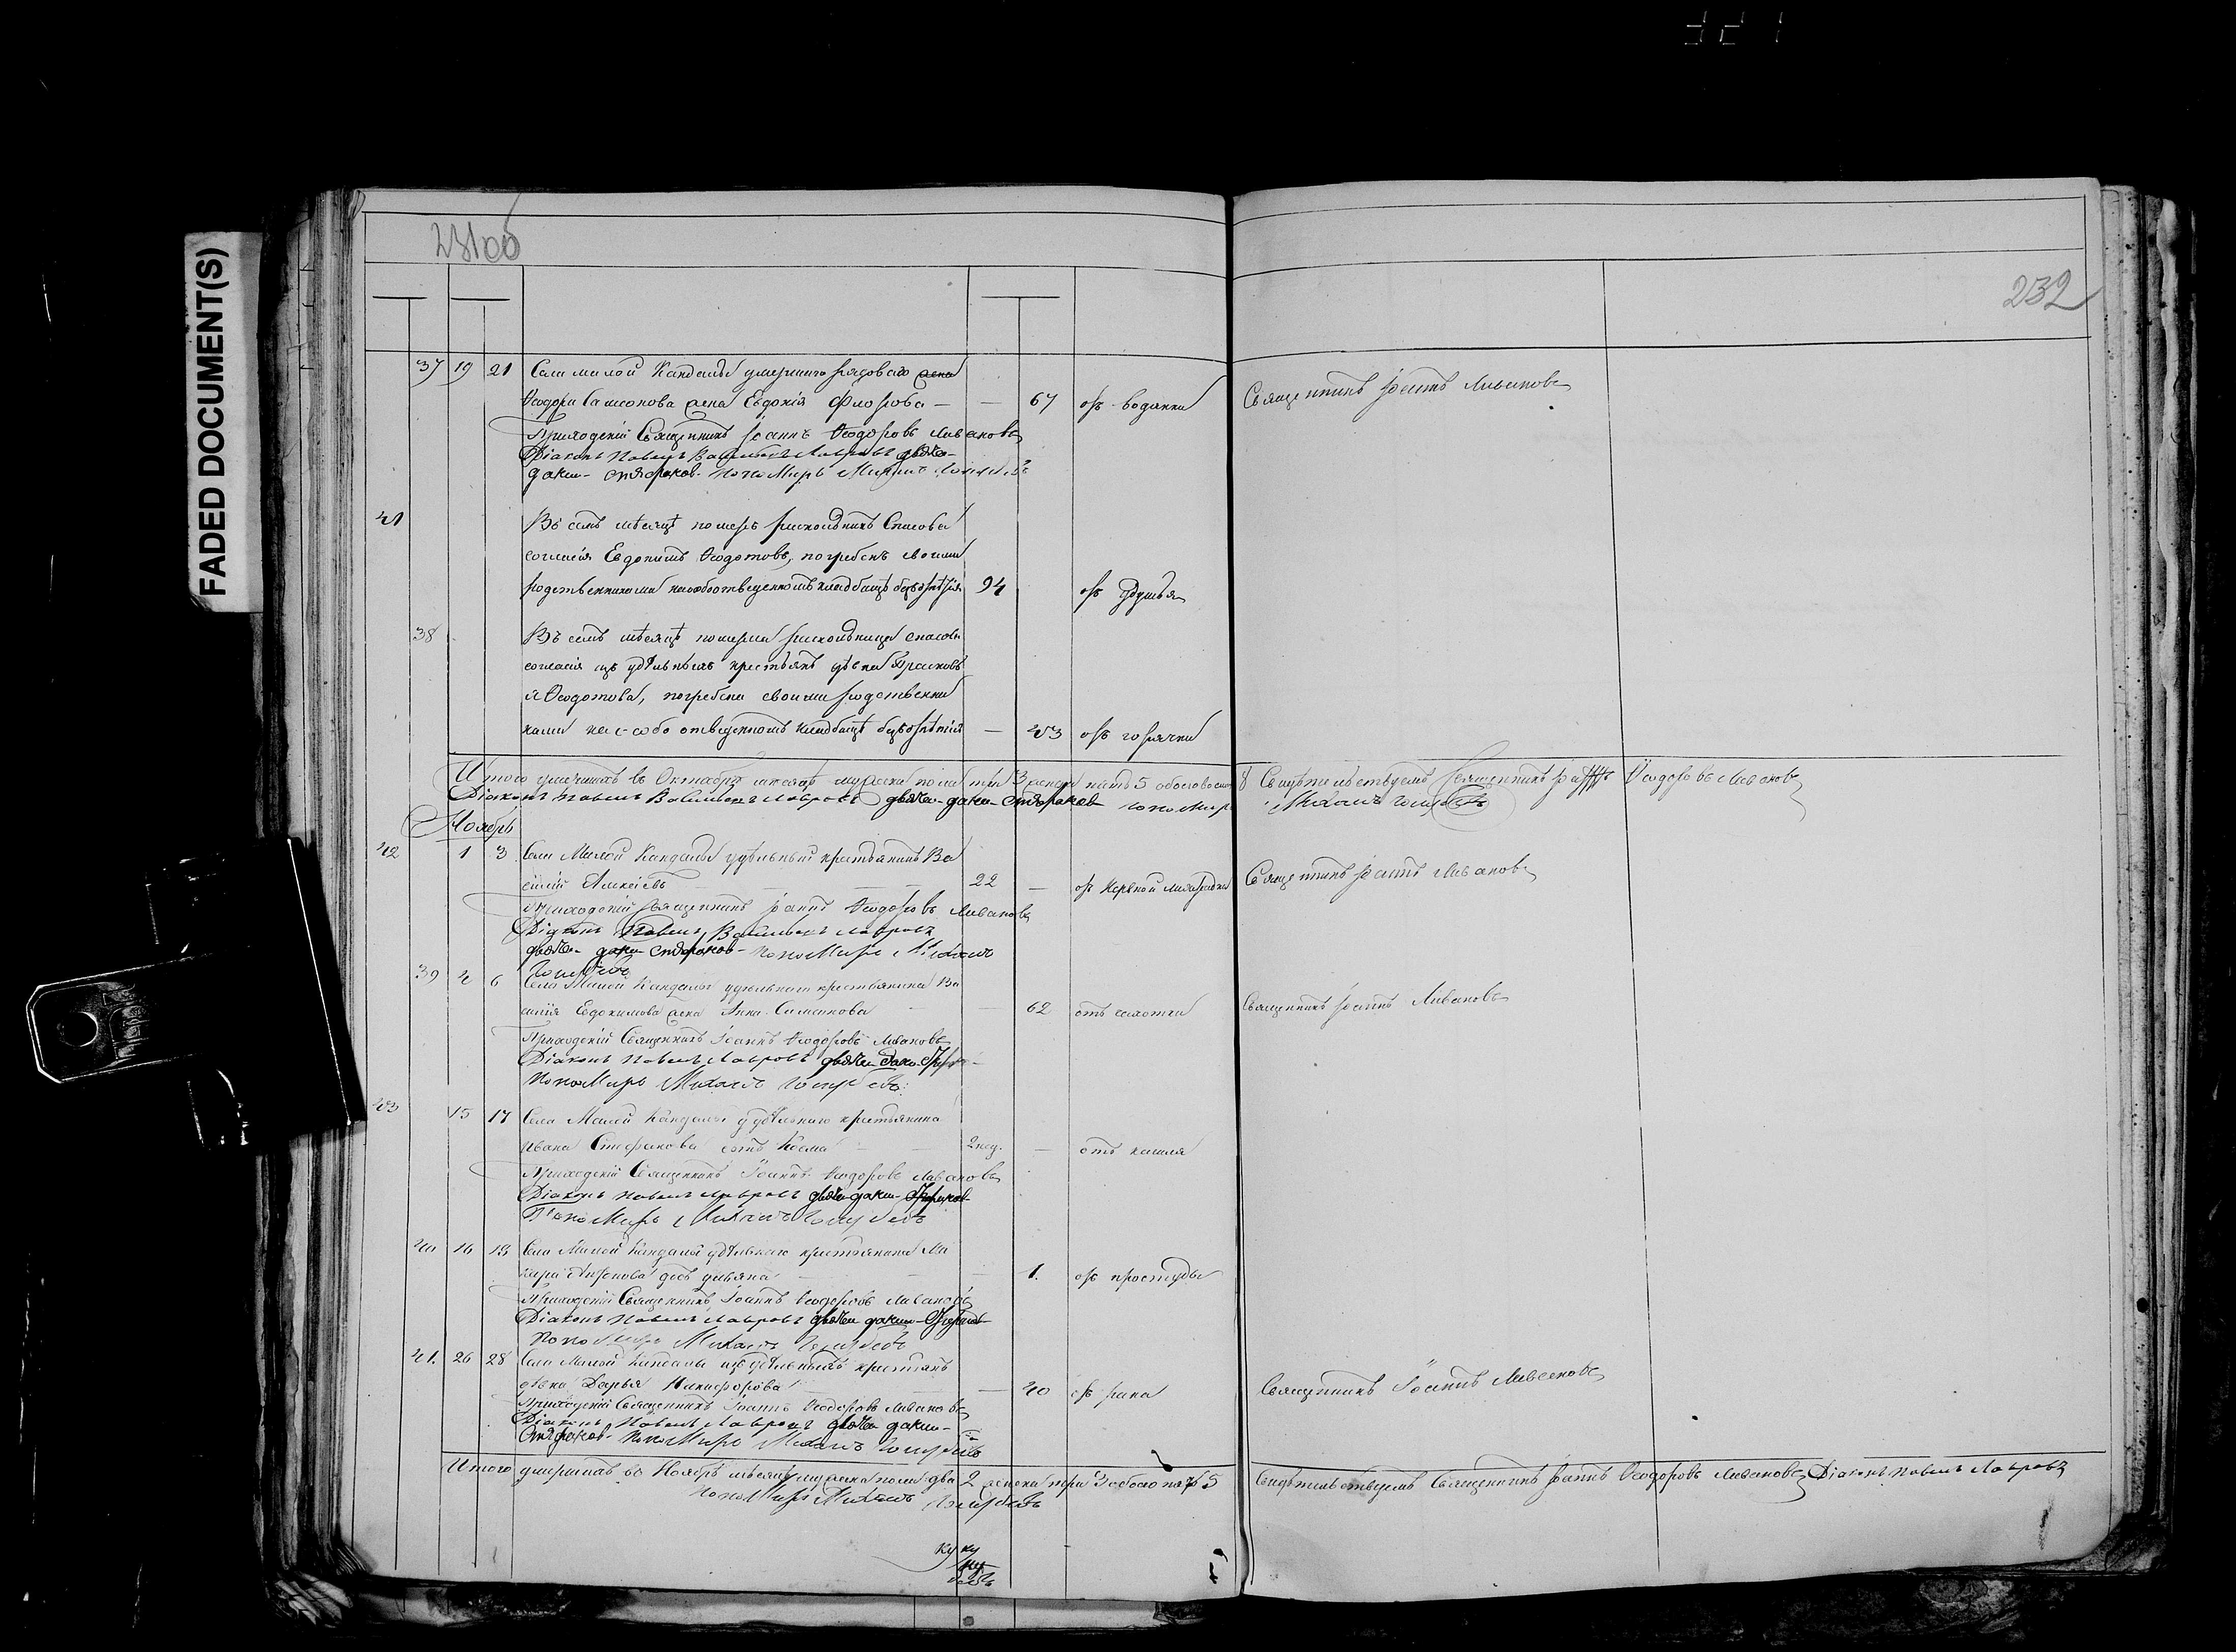 FADED DOCUMENT(S)
231об
232
37 19 21 Села Малой Кандалы умершаго рядоваго жена
Ѳеодора Самсонова жена Евдокія Флорова — — 67 отъ водянки Священникъ Іоаннъ Ливановъ
Приходскій Священникъ Іоаннъ Ѳеодоровъ Ливановъ
Діаконъ Павелъ Лавровъ
Пономарь Михаилъ Голубевъ
41 Въ семъ мѣсяцѣ померъ раскольникъ Спасова
согласія Евдокимъ Ѳеодотовъ, погребенъ своими
родственниками на особо отведенномъ кладбищѣ 94 отъ удушья
38 Въ семъ мѣсяцѣ померла раскольница спасова
согласія изъ удѣльныхъ крестьянъ дѣвка Прасковь
я Ѳеодотова, погребена своими родственни
ками на особо отведенномъ кладбищѣ — 43 отъ горячки
Итого умершихъ въ Октябрѣ мѣсяцѣ мужеска пола три 3 женска пять 5 обоего восемь 8 Свидѣтельствуемъ Священникъ Іоаннъ Ѳеодоровъ Ливановъ
Діаконъ Павелъ Лавровъ Пономарь Михаилъ Голубевъ
Ноябрь
42 1 3 Села Малой Кандалы удѣльный крестьянинъ Ва
силій Алексѣевъ 22 — отъ нервной лихорадки Священникъ Іоаннъ Ливановъ
Приходскій Священникъ Іоаннъ Ѳеодоровъ Ливановъ
Діаконъ Павелъ Лавровъ
Пономарь Михаилъ
Голубевъ
39 4 6 Села Малой Кандалы удѣльнаго крестьянина Ва
силія Евдокимова жена Анна Симеонова — 62 отъ чахотки Священникъ Іоаннъ Ливановъ
Приходскій Священникъ Іоаннъ Ѳеодоровъ Ливановъ
Діаконъ Павелъ Лавровъ
Пономарь Михаилъ Голубевъ
43 15 17 Села Малой Кандалы удѣльнаго крестьянина
Ивана Стефанова сынъ Косма 2 нед. — отъ кашля
Приходскій Священникъ Іоаннъ Ѳеодоровъ Ливановъ
Діаконъ Павелъ Лавровъ
Пономарь Михаилъ Голубевъ
40 16 18 Села Малой Кандалы удѣльнаго крестьянина Ма
дочь Ульяна — 1. отъ простуды
Приходскій Священникъ Іоаннъ Ѳеодоровъ Ливановъ
Діаконъ Павелъ Лавровъ
Пономарь Михаилъ Голубевъ
41. 26 28 Села Малой Кандалы изъ удѣльныхъ крестьянъ
дѣвка Дарья Никифорова — 40 отъ рака Священникъ Іоаннъ Ливановъ
Приходскій Священникъ Іоаннъ Ѳеодоровъ Ливановъ
Діаконъ Павелъ Лавровъ
Пономарь Михаилъ Голубевъ
Итого умершихъ въ Ноябрѣ мѣсяцѣ мужеска пола два 2 женска три 3 обоего пять 5 Свидѣтельствуемъ Священникъ Іоаннъ Ѳеодоровъ Ливановъ Діаконъ Павелъ Лавровъ
Пономарь Михаилъ Голубевъ